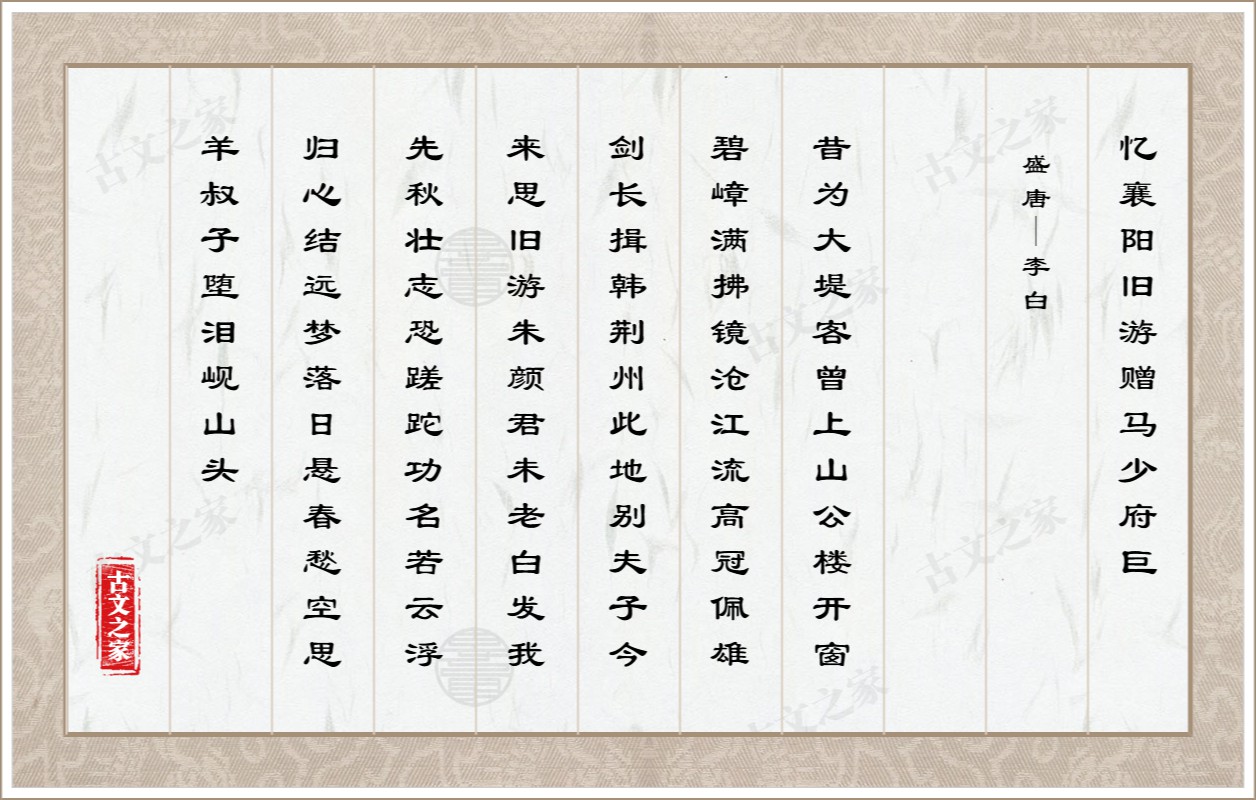 忆襄阳旧游赠马少府巨
盛唐—李白
昔为大堤客曾上山公楼开窗
碧嶂满拂镜沧江流高冠佩雄
剑长揖韩荆州此地别夫子今
来思旧游朱颜君未老白发我
先秋壮志恐蹉跎功名若云浮
归心结远梦落日悬春愁空思
羊叔子堕泪岘山头
古文之家
古文之家
古文之家
古文之家
古文之家
古文之家
古文之家